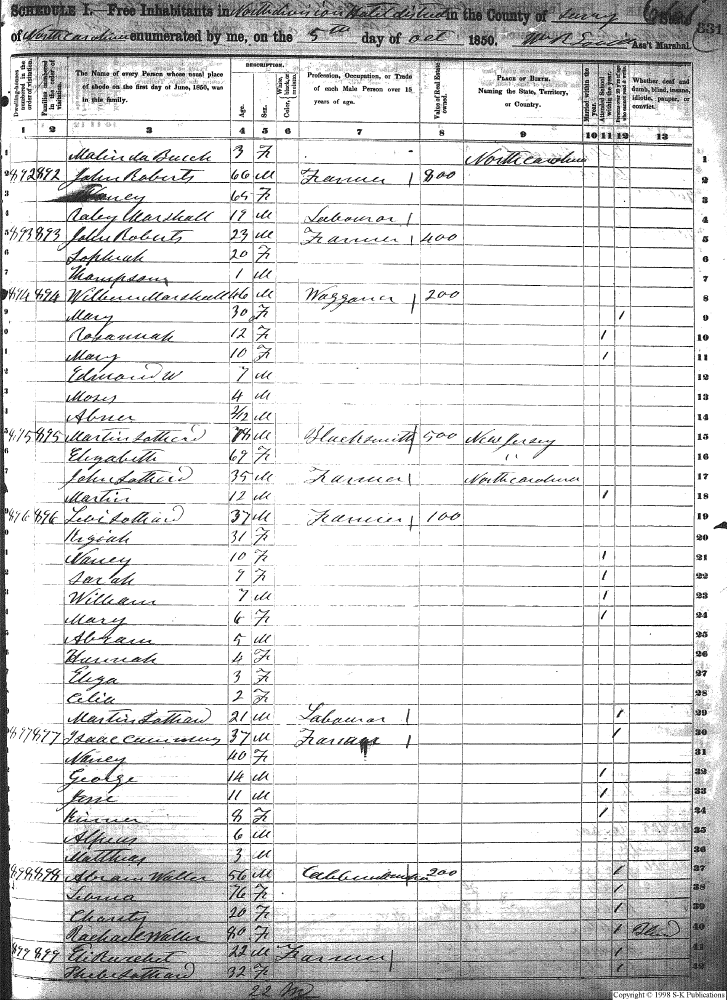 SCHEDULE I. Free Inhabitants in North division in the County of Surry State
of North Carolina enumerated by me, on the 5th day of Oct 1850. Ass't Marshal.
331
Dwelling-houses numbered in the order of visitation.
Families numbered in the order of visitation.
The Name of every Person whose usual place of abode on the first day of June, 1850, was in this family.
DESCRIPTION.
Age.
Sex.
Color, White, black, or mulatto.
Profession, Occupation, or Trade of each Male Person over 15 years of age.
Value of Real Estate owned.
PLACE OF BIRTH. Naming the State, Territory, or Country.
Married within the year.
Attended School within the year.
Persons over 20 y'rs of age who cannot read & write.
Whether deaf and dumb, blind, insane, idiotic, pauper, or convict.
1 2 3 4 5 6 7 8 9 10 11 12 13
1 Malinda 3 F North Carolina 1
892 892 John Roberts 66 M Farmer 800 2
Nancy 65 F 3
Raley Marshall 19 M Labouror 4
893 893 John Roberts 23 M Farmer 400 5
20 F 6
Thompson 1 M 7
894 894 Marshall 46 M Waggoner 200 8
Mary 30 F / 9
Rosannah 12 F / 10
Mary 10 F / 11
Edmond W 7 M 12
Moses 4 M 13
Abner 2/12 M 14
895 895 Martin M Blacksmith 500 New Jersey 15
Elizabeth 69 F " 16
John 35 M Farmer North Carolina 17
Martin 12 M / 18
896 896 Levi 37 M Farmer 100 19
31 F 20
Nancy 10 F / 21
Sarah 9 F / 22
William 7 M / 23
Mary 6 F / 24
Abram 5 M 25
Hannah 4 F 26
Eliza 3 F 27
Celia 2 F 28
Martin 21 M Labouror / 29
897 897 Isaac 37 M Farmer / 30
Nancy 40 F 31
George 14 M / 32
Jesse 11 M / 33
8 F / 34
6 M 35
Matthias 3 M 36
898 898 Abram Waller 56 M 200 / 37
76 F / 38
Charity 20 F / 39
Rachael Waller 80 F / Blind 40
899 899 Eli 22 M Farmer 41
32 F 42
22 M
Copyright © 1998 S-K Publications